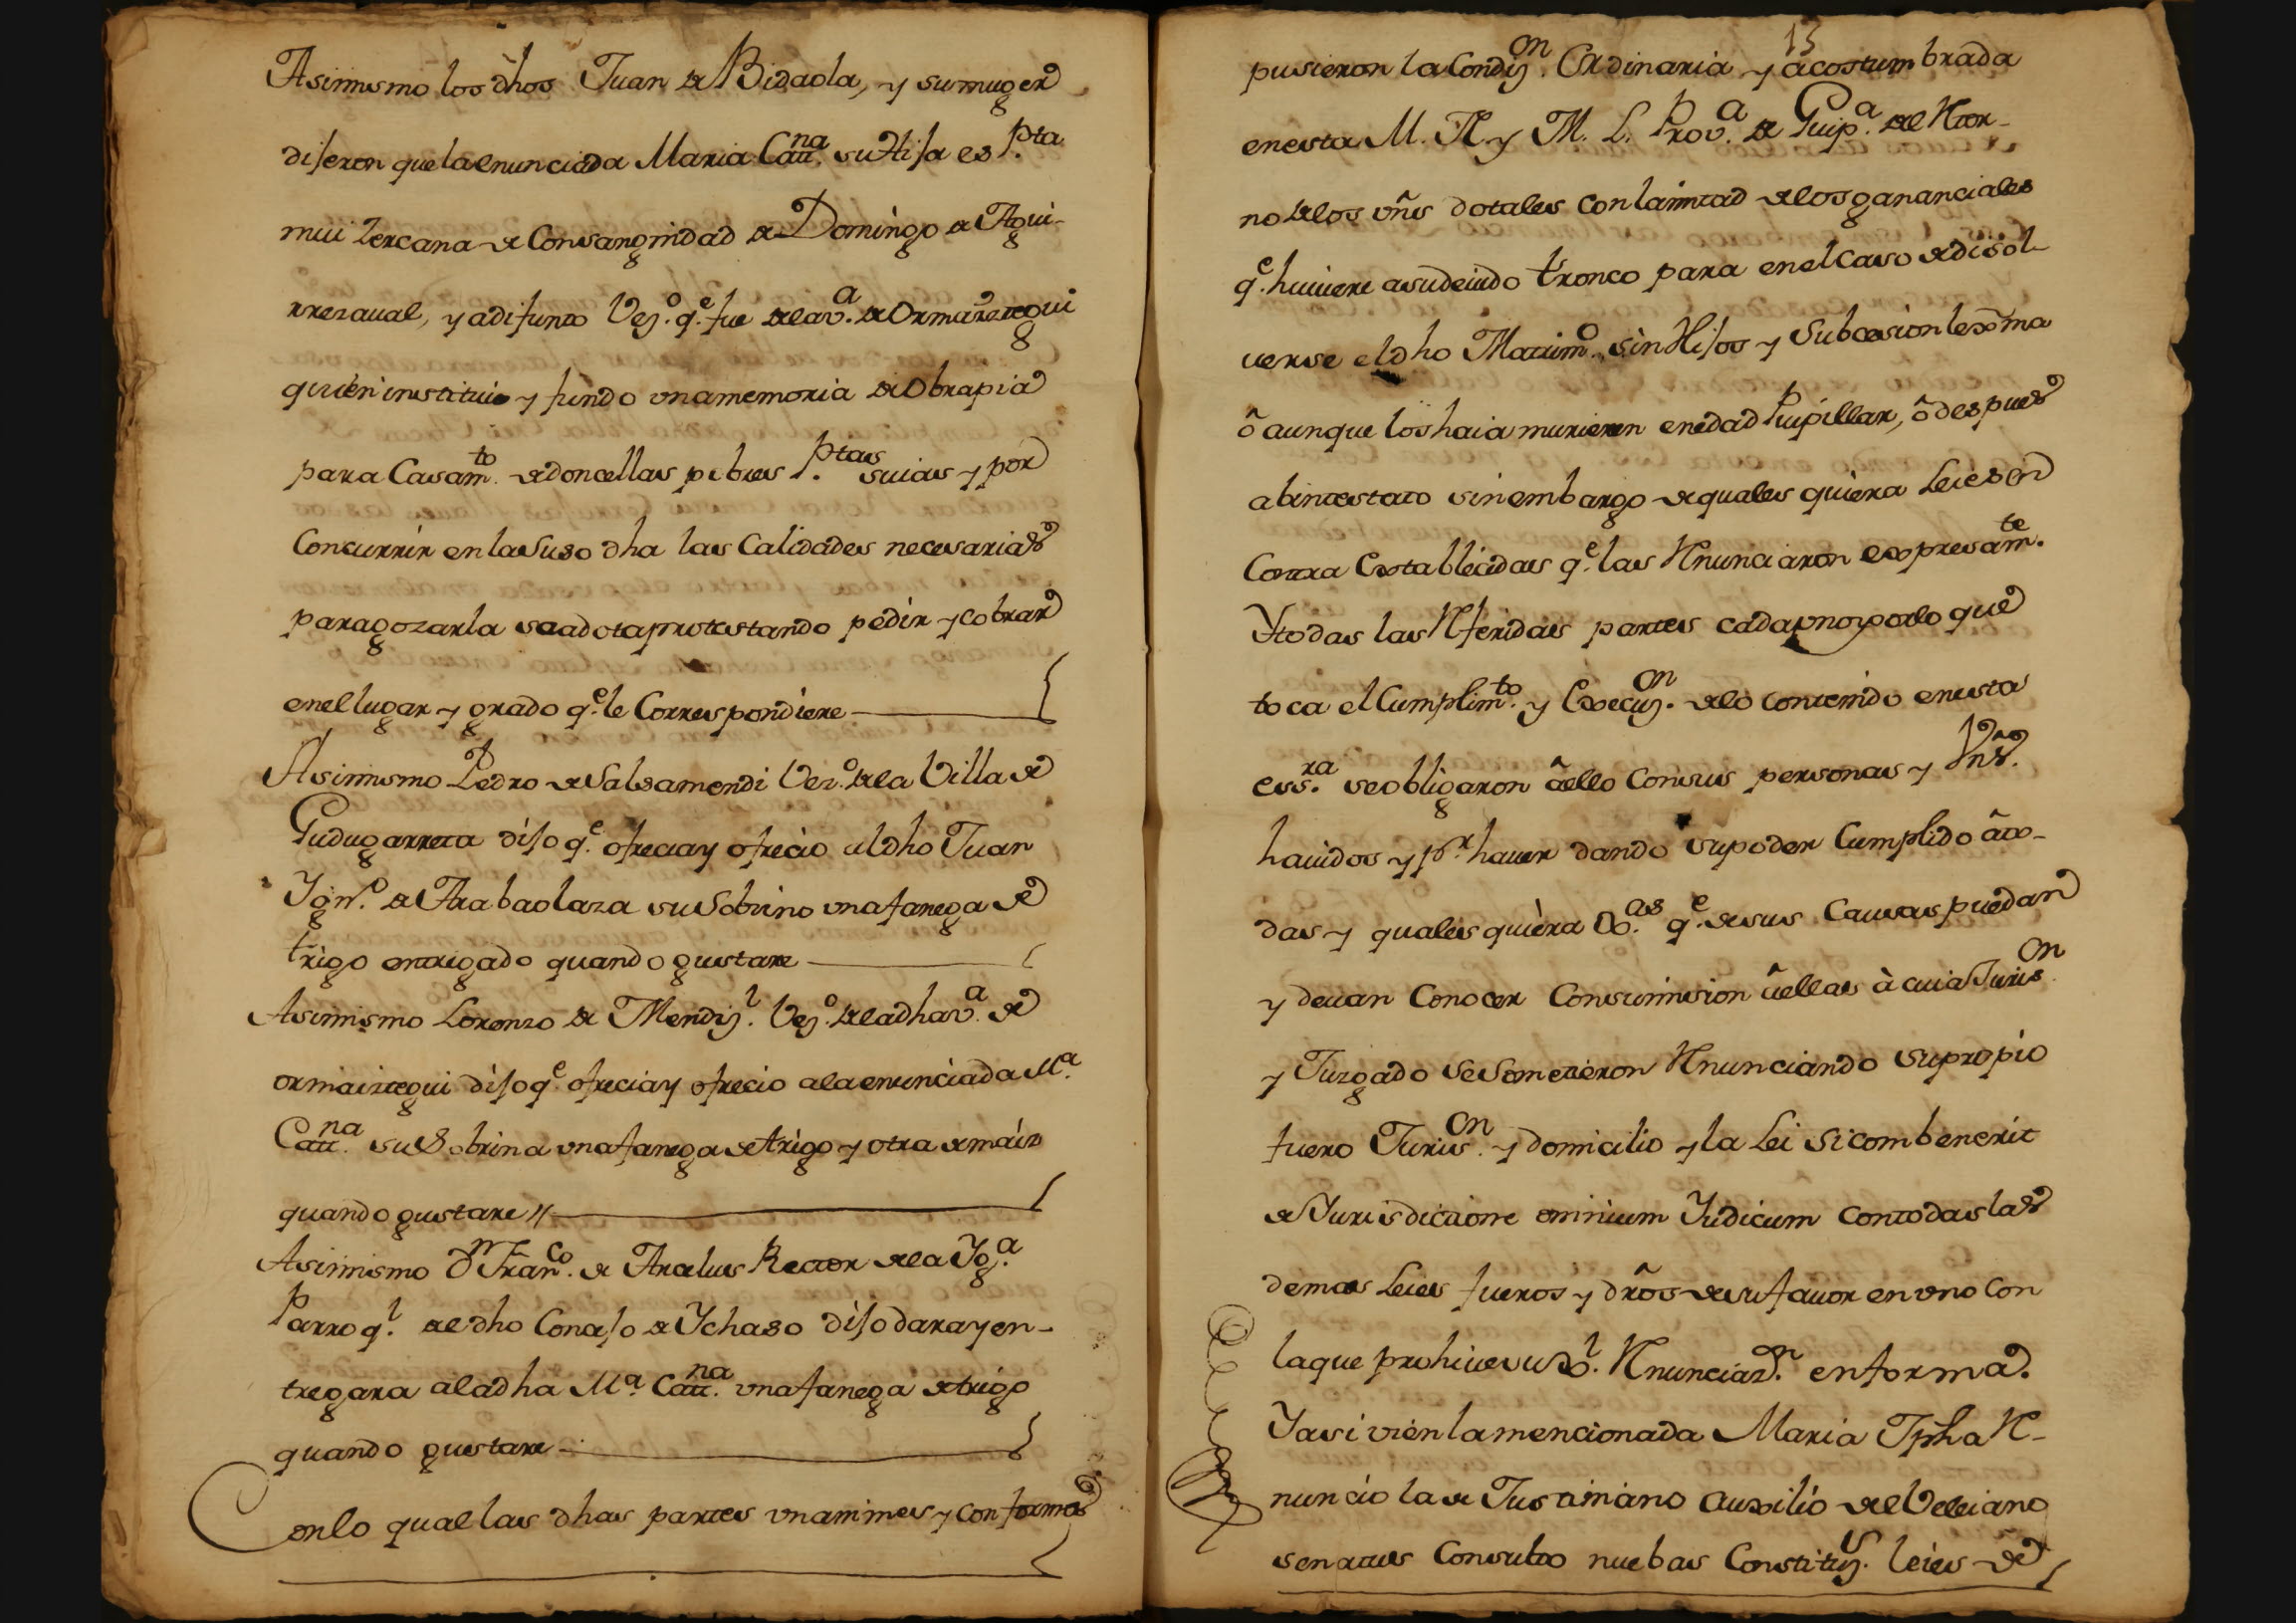 Asimismo los dhos Juan de Bidaola, y su muger
dijeron que la enunciada Maria Catt.na su Hija es P.ta
mui zercana de Consanginidad de Domingo de Agui-
rrezaual, ya difunto Vez.o q.e fue de la v.a de Ormaiztegui
quien instituio y fundo vna memoria de Obrapia
para Casam.to de doncellas pobres P.tas suias y por
Concurrir en la Suso dha las Calidades necesarias
para gozar la seadota protestando pedir y cobrar
en el lugar y grado q.e le Correspondiere
Asimismo Pedro de Salsamendi Vez.o de la Villa de
Gudugarreta dijo q.e ofrecia y ofrecio al dho Juan
Ygn.o de Arabaolaza su Sobrino vna fanega de
trigo entrigado quando gustare
Asimismo Lorenzo de Mendiz.l Vez.o de la dha v.a de
ormaiztegui dijo q.e ofrecia y ofrecio a la enunciada M.a
Catt.na su Sobrina vna fanega de trigo y otra de maiz
quando gustare //
Asimismo D.n Fran.co de Arcelus Rector de la Yg.a
Parroq.l de dho Concejo de Ychaso dijo dara y en-
tregara a la dha M.a Catt.na vna fanega de trigo
quando gustare
Con lo qual las dhas partes vnanimes y conformes
13
pusieron la Condiz.on Ordinaria y acostumbrada
en esta M. N. y M. L. Prov.a de Guip.a de Retor-
no de los vñs dotales con la mitad de los gananciales
q.e huuiere a su deuido tronco para en el Caso de disol-
verse el dho Matrim.o sin Hijos y Subcesion lexma
ô aunque los haia murieren en edad Pupillar, ô despues
abintestato sin embargo de quales quiera Leies en
Contra Extablecidas q.e las Renunciaron expresam.te
Y todas las Referidas partes cada vno por lo que
toca el Cumplim.to y Execuz.on de lo contenido en esta
ess.ra se obligaron âello Con sus personas y Vñs.
hauidos y p.r hauer dando su poder Cumplido âto-
das y quales quiera Xs.as q.e de sus Causas puedan
y deuan Conocer Con sumision âellas à cuia Juris.on
y Juzgado Se Sometieron Renunciando su propio
fuero Juris.on y domicilio y la Lei Si combenerit
de Jurisdictione omnium Judicum Con todas las
demas Leies fueros y dros de su fauor en vno Con
la que prohiue su Xo.l Renunciaz.on en forma.
Y asi vien la mencionada Maria Jpha Re-
nuncio la de Justiniano auxilio del Veleiano
senatus Consulto nuebas Constituz.s leies de